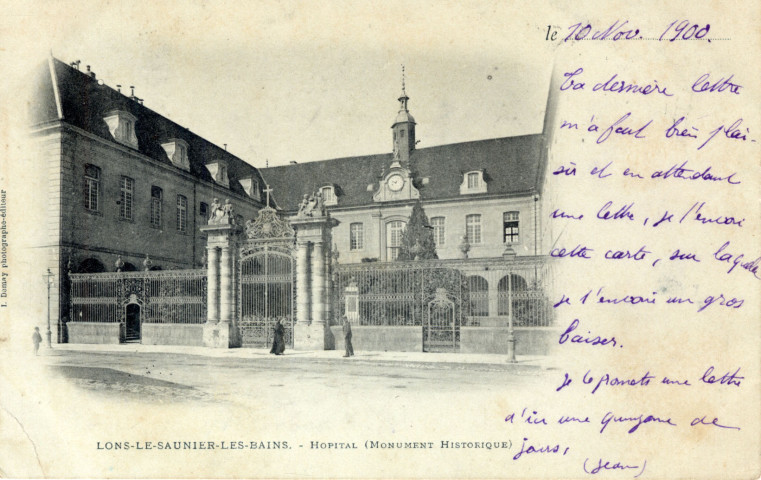 le 10 Nov. 1900.
Ta dernière lettre
m'a fait bien plai-
sir et en attendant
une lettre, je t'envoi
cette carte, sur laquelle
je t'envoie un gros
baiser.
je te promets une lettre
d'ici une quinzane de
jours,
(Jean)
LONS-LE-SAUNIER-LES-BAINS. - HOPITAL (MONUMENT HISTORIQUE)
1. Domay photographe-éditeur